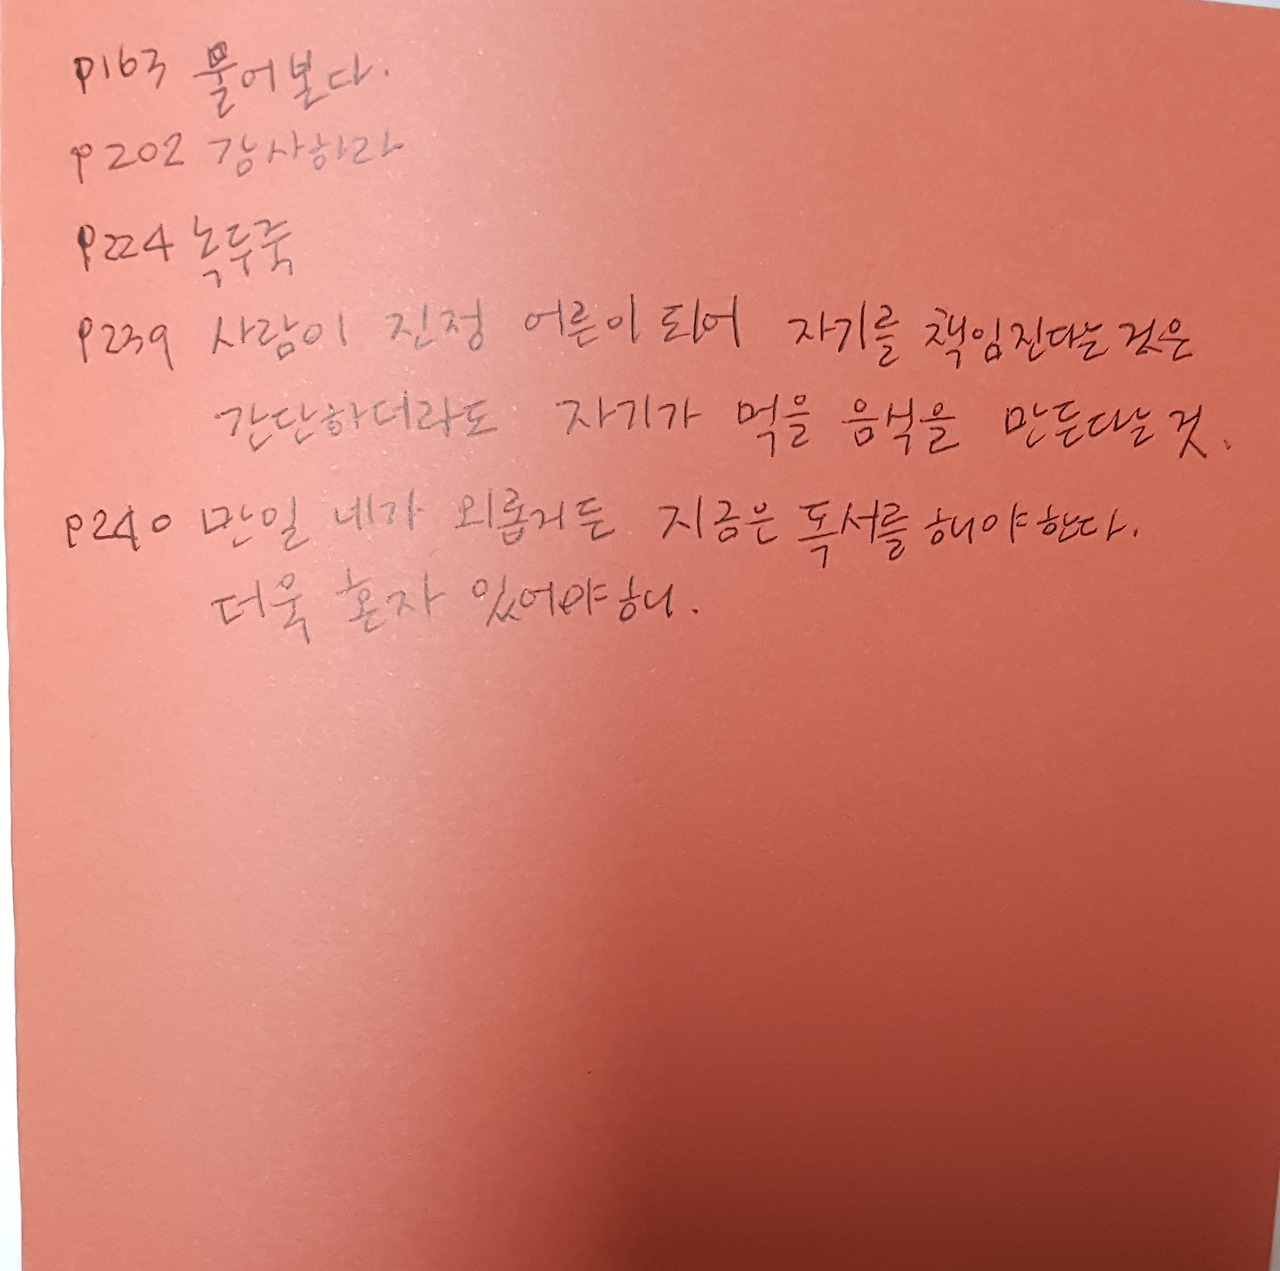 p163 물어보다.
p202 감사하라
p224 녹두죽
p239 사람이 진정 어른이 되어 자기를 책임진다는것은
간단하더라도 자기가 먹을 음식을 만든다는것.
p240 만일 네가 외롭거든 지금은 독서를해야한다.
더욱 혼자 있어야해.